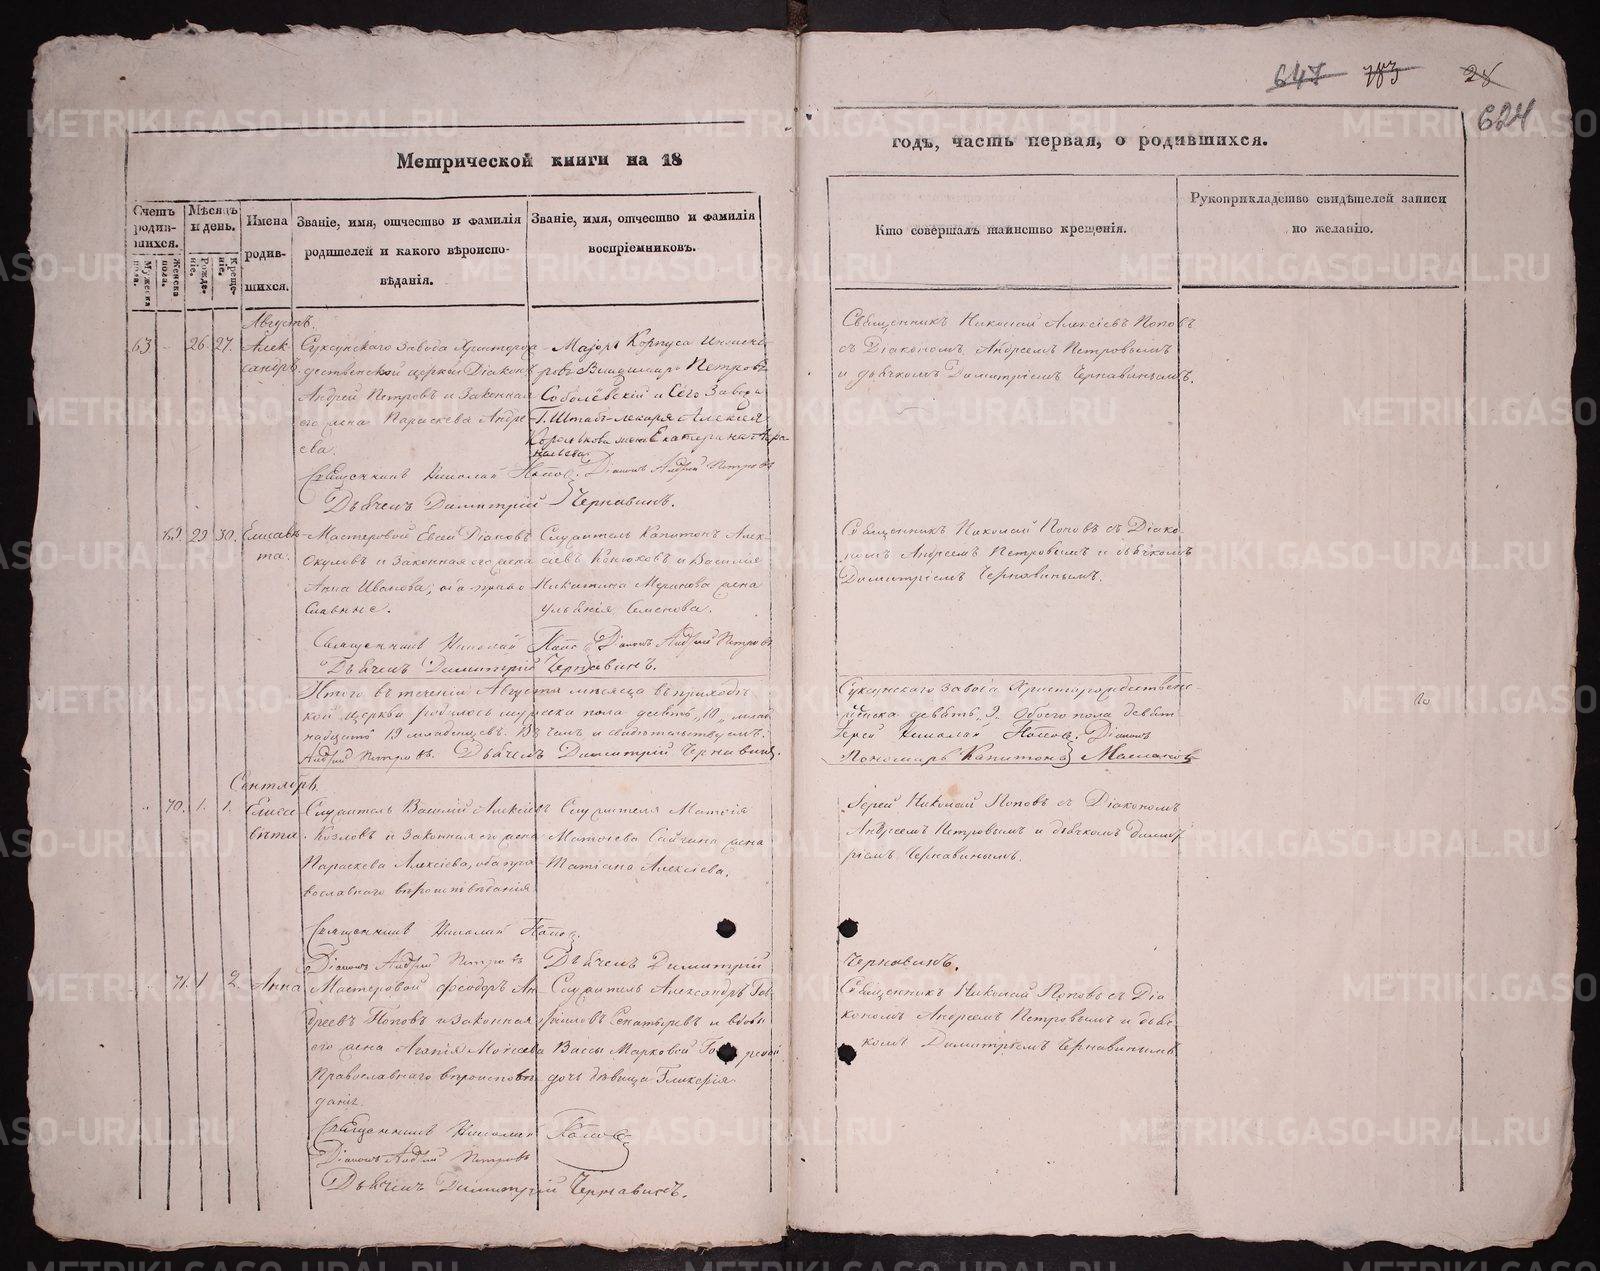 647 783 28
624
Метрической книги на 18
годъ, часть первая, о родившихся.
Счетъ родившихся.
Мужеска пола.
Женска пола.
Мѣсяцъ и день.
Рожденіе.
Крещеніе.
Имена родившихся.
Званіе, имя, отчество и фамилія родителей и какого вѣроисповѣданія.
Званіе, имя, отчество и фамилія воспріемниковъ.
Кто совершалъ таинство крещенія.
Рукоприкладство свидѣтелей записи по желанію.
Августъ.
63 26. 27. Александръ.
Суксунскаго Завода Христорождественской церкви Діаконъ
Андрей Петровъ и Законная
его жена Параскева Андреева.
Маіоръ Корпуса Инженеровъ Владимиръ Петровъ
Соболевскій и Сего Завода
Г. Штабъ-лекаря Алексея
Королькова жена Екатерина
Священникъ Николай Алексіевъ Поповъ
съ Діакономъ Андреемъ Петровымъ
и дьячкомъ Димитріемъ Чернавинымъ.
Священникъ Николай Поповъ. Діаконъ Андрей Петровъ
Дьячекъ Димитрій Чернавинъ.
69. 29 30. Елисавета.
Мастеровой Евсей Діановъ
Окуловъ и Законная его жена
Анна Иванова, оба православные.
Служитель Капитонъ Алексіевъ Конюховъ и Василія
Никитина Меринова жена
Ульянія Семенова.
Священникъ Николай Поповъ съ Діакономъ Андреемъ Петровымъ и дьячкомъ
Димитріемъ Чернавинымъ.
Священникъ Николай Поповъ Діаконъ Андрей Петровъ
Дьячекъ Димитрій Чернавинъ.
Итого въ теченіи Августа месяца въ приходѣ
Суксунскаго Завода Христорождественской церкви родилось мужеска пола десять „10„
женска девять „9„ Обоего пола девятнадцать 19 младенцевъ. Въ чемъ и свидетельствуемъ.
Іерей Николай Поповъ. Діаконъ
Андрей Петровъ. Дьячекъ Димитрій Чернавинъ.
Пономарь Капитонъ
Сентябрь.
70. 1. 1. Елисавета.
Служитель Василій Алексіевъ
Козловъ и Законная его жена
Параскева Алексіева, оба православнаго вѣроисповѣданія
Служителя Матѳія
Матѳіева Сайгина жена
Татіана Алексіева.
Іерей Николай Поповъ съ Діакономъ
Андреемъ Петровымъ и дьячкомъ Димитріемъ Чернавинымъ.
Священникъ Николай Поповъ.
Діаконъ Андрей Петровъ Дьячекъ Димитрій
Чернавинъ.
71. 1 2. Анна
Мастеровой Феодоръ Андреевъ Поповъ и Законная
его жена Агапія Моисеева
Православнаго вѣроисповѣданія.
Служитель Александръ
и вдовы
Вассы Марковой
дочь дѣвица Гликерія
Священникъ Николай Поповъ съ Діакономъ Андреемъ Петровымъ и дьячкомъ Димитріемъ Чернавинымъ
Священникъ Николай Поповъ
Діаконъ Андрей Петровъ
Дьячекъ Димитрій Чернавинъ.
METRIKI.GASO-URAL.RU